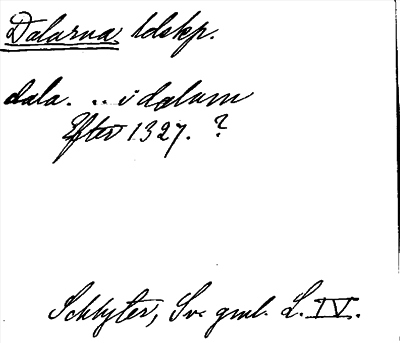 Dalarna. ldskp.
dala. .. i dalum
Efter 1327. ?
Schlyter, Sv. gml. L. IV.